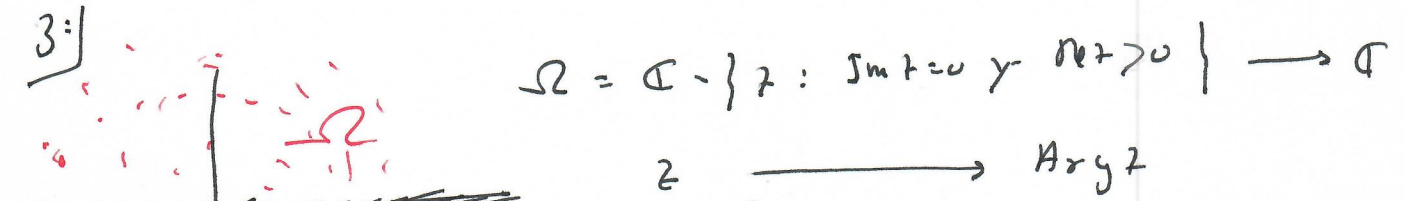 3:
Ω = ℂ - { z : Im z = 0 y Re z > 0 } → ℂ
Ω
z → Arg z